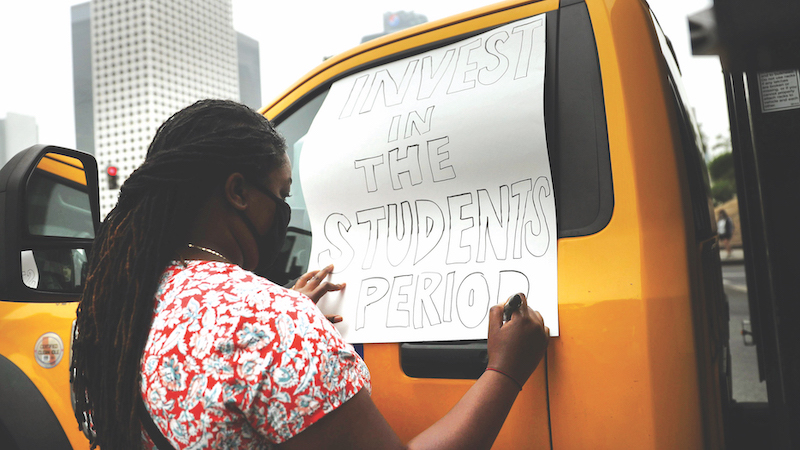 INVEST
IN
THE
STUDENTS
PERIOD